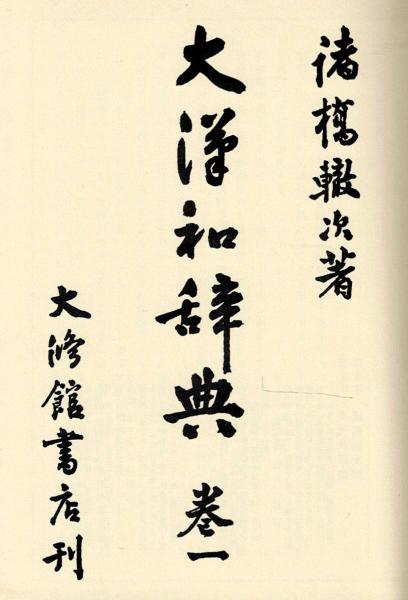 諸橋轍次著
大漢和辞典 巻一
大修館書店刊